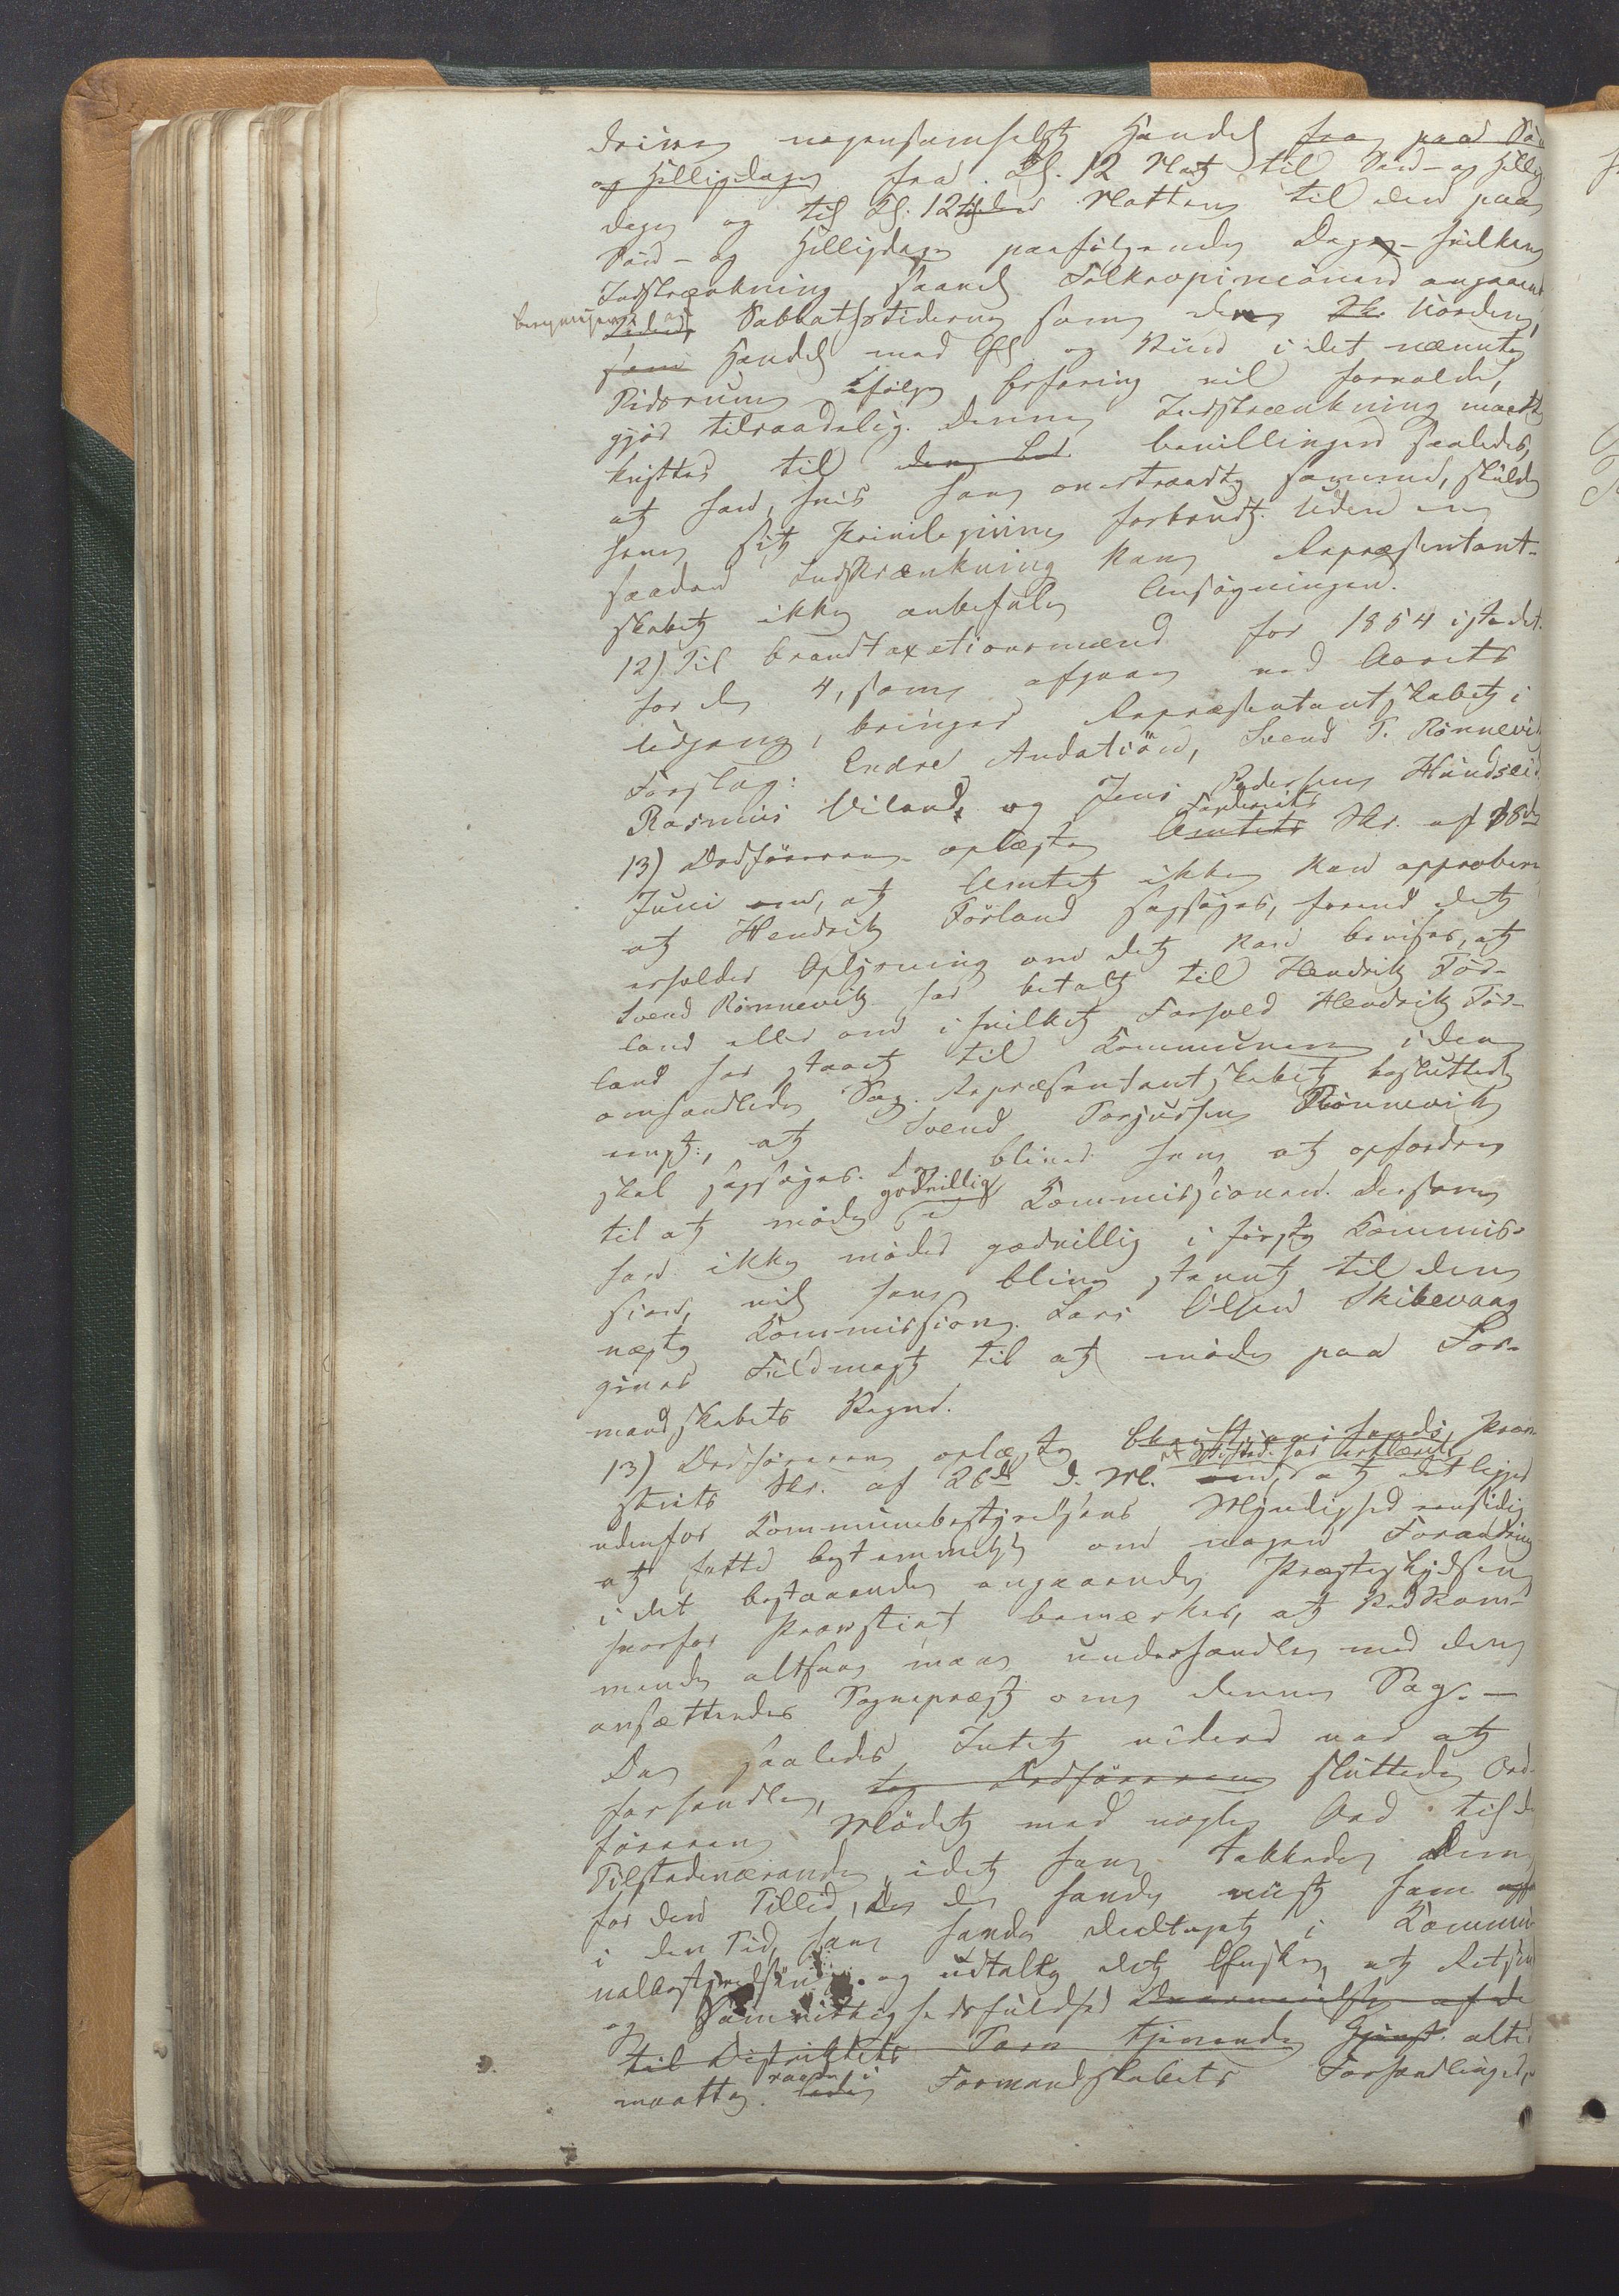 drive nogensomhelst Handel fra paa Søn
og Helligdage fra Kl. 12 Nat til Søn- og Hellig
dage og til Kl. 12 Natten til den paa
Søn- og Helligdage paafølgende Dage, hvilken
Indskrænkning saavel Folkeopinionen angaaende
Sabbathstiderne som den Uorden,
som Handel med Øl og Viin i det nævnte
Tidsrum ifølge Erfaring vil forvolde,
gjør tilraadelig. Denne Indskrænkning maatte
knyttes til den bevillingen saaledes,
at han, hvis han overtraadte samme, skulde
have sit Privilegium forbrudt. Uden en
saadan Indskrænkning kan Repræsentant-
skabet ikke anbefale Ansøgningen.
12) Til Brandtaxationsmænd for 1854 istedet
for de 4, som afgaae ved Aarets
Udgang, bringer Repræsentantskabet i
Forslag: Endre Andatiøn, Svend T. Rønnevig
Rasmus Viland, og Jens Pedersen Hundseid
13) Ordføreren oplæste Amtets Skr. af 18de
Juni om, at Amtet ikke kan approbere
at Hendrik Førland sagsøges, forend det
erholder Oplysning om det kan bevises, at
Svend Rønnevik har betalt til Hendrik Før-
land eller om i hvilket Forhold Hendrik Før-
land har staaet til Kommunen i den
omhandlede Sag. Repræsentantskabet besluttede
at Svend Torjussen Rønnevik
skal sagsøges. Der bliver ham at opfordre
til at møde godvillig i Kommissionen. Dersom
han ikke møder godvillig i første Kommis-
sion, vil han blive stevnt til den
næste Kommission. Lars Olsen Skibevaag
gives Fuldmagt til at møde paa For-
mandskabets Vegne.
13) Ordføreren oplæste Christianssands Prov
stiets Skr. af 26de d. M. om, at det ligger
udenfor Kommunebestyrelsens Myndighed ensidig
at fatte bestemmelse om nogen Forandring
i det bestaaende angaaende Præsteskydsen
hvorfor Provstiet bemærker, at Vedkom-
mende altsaa maa underhandle med den
ansættende Sognepræst om denne Sag. —
Da saaledes Intet videre var at
forhandle, tog Ordføreren sluttede Ord-
føreren Mødet med nogle Ord til de
Tilstedeværende, idet han takkede dem
for den Tillid, de havde viist ham
i den Tid, han havde deeltaget i Kommu-
nalbestyrelsen og udtalte det Ønske, at Retsind
og Samvittighedsfuldhed
til Districtets Tarv tjenende altid
maatte raade i Formandskabets Forhandlinger,